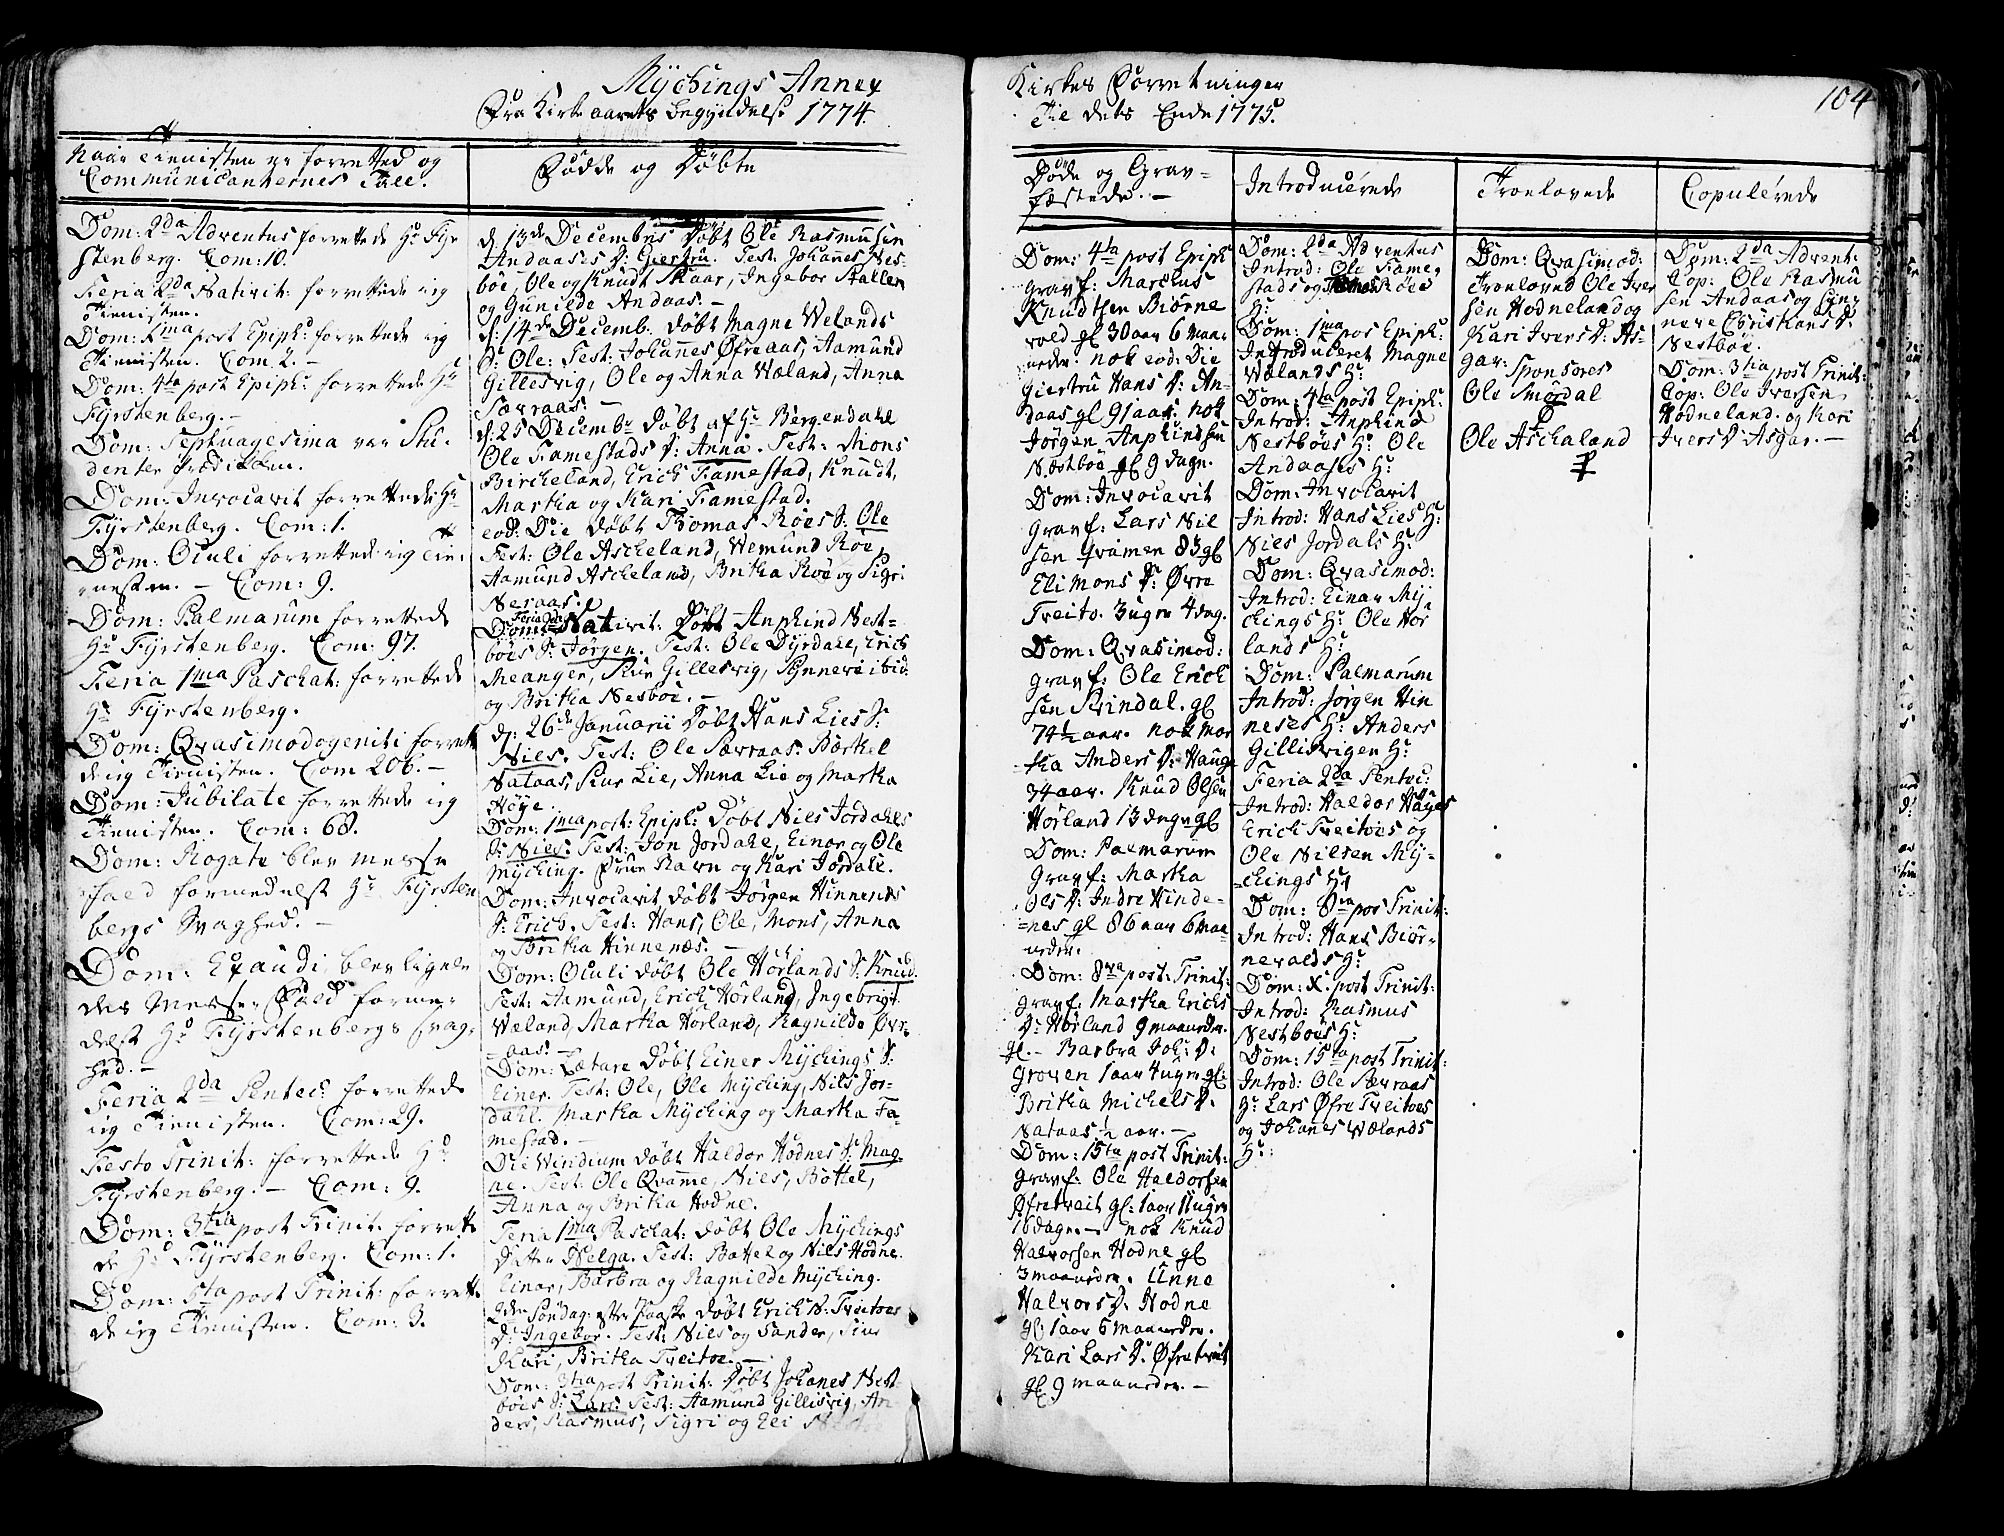 Mÿchings Annex
Fra Kirke aarets begyndelse 1774.
Naar Tienisten er forretted og
Communicanternes Tall.
Dom: 2da Adventus forrettede Hr Fÿr
stenberg. Com: 10.
Feria 2da Nativit: forrettede ieg
Tienisten.
Dom: 1ma post Epiph: forrettede ieg
Tienisten. Com 2. -
Dom: 4ta post Epiph: forrettede Hr
Fÿrstenberg. -
Dom: Septuagesima var Stu-
denter
Dom: Invocavit forrettede Hr
Fÿrstenberg. Com: 1.
Dom: Oculi forrettede ieg Tie-
nesten. - Com: 9.
Dom: Palmarum forrettede
Hr Fÿrstenberg. Com: 97.
Feria 1ma Paschat: forrettede
Hr Fÿrstenberg.
Dom: Qvasimodogeniti forrette
de ieg Tienisten. Com 206. -
Dom: Jubilate forrettede ieg
Tienisten. Com: 68.
Dom: Rogate blev messe
fald formedelst Hr Fÿrsten
bergs Svaghed. -
Dom: Exaudi blev ligele
des Messe Fald forme-
delst Hr Fÿrstenbergs svag-
hed. -
Feria 2da Pentec: forrettede
ieg Tienisten. Com: 29.
Festo Trinit: forrettede Hr
Fÿrstenberg. - Com: 9.
Dom: 3tia post Trinit: forrette
de Hr Fÿrstenberg. Com: 1.
Dom: 5ta post Trinit: forrette
de ieg Tienisten. Com: 3.
Födde og Døbte
d: 13de Decembris Døbt Ole Rasmusen
Andaases D: Giertru. Test: Johannes Nes-
böe, Ole og Knudt Skaar, Ingebor Stallen
og Gunilde Andaas. -
d: 14de Decemb: døbt Magne Welands
S: Ole: Test: Johannes Øfreaas, Aamund
Gillesvig, Ole og Anna Wæland, Anna
Særraas. -
d: 25 Decembr døbt af Hr Bergendahl
Ole Famestads D: Anna. Test: Mons
Birckeland, Erich Famestad, Knudt,
Martha og Kari Framestad.
eod: Die døbt Thomas Röes S: Ole
Test: Ole Ascheland, Wemund Röe,
Aamund Ascheland, Britha Roe og Sigri
Neraas.
Feria 2da Nativit: Døbt Anphind Nest-
böes S: Jørgen. Test: Ole Dÿrdale, Erich
Meanger, Siur Gillesvig, Synnevé ibid:
og Britha Nesboe. -
d: 26de Januarii Døbt Hans Lies S:
Nies. Test: Ole Særraas. Børkel
Nataas, Siur Lie, Anna Lie og Martha
Höÿe.
Dom: 1ma post: Epiph: Døbt Niels Jordahls
S: Nies: Test: Jon Jordale, Einar og Ole
Mÿching. Ravn og Kari Jordale.
Dom: Invocavit døbt Jørgen Hinnenes
S: Erich. Test: Hans, Ole, Mons, Anna
og Britha Hinnenæs. -
Dom: Oculi døbt Ole Hörlands S: Knud.
Test: Aamund, Erich Hörland, Ingebrigt
Wæland, Martha Hörland, Ragnilde Øvr-
aas. -
Dom: Lætare Døbt Einer Mÿchings S:
Einer. Test: Ole, Ole Mÿching, Nils Jor-
dahl. Martha Mÿching og Martha Fa-
mestad. -
Die Viridium døbt Haldor Hodnes S: Mag-
ne. Test: Ole Qvame, Nies, Böttel,
Anna og Britha Hodne.
Feria 1ma Paschat: døbt Ole Mÿchings
Datter Helga. Test: Battel og Nils Hodne.
Einar, Barbra og Ragnilde Mÿching.
2den Søndag efter Paaske døbt Erich N: Treitoes
D: Ingebor. Test: Nies og Sander, Siur
Kari, Britha Treitoe. -
Dom: 3tia post Trinit: Døbt Johanes Nest-
böes S: Lars. Test: Aamund Gillisvig, An
ders, Rasmus, Sigri og Eli
Kirkes Forretninger
Til dets Ende 1775.
104
Døde og Grav-
fæstede. -
Dom: 4ta post Epiph:
gravf: Marchus
Knudtsen Biörne
vold gl 30 aar 6 maa-
neder. nok eod: Die
Giertru Hans D: An-
daas gl 91 aar. nok
Jörgen Anphindsen
Næstböe gl 9 dage.
Dom: Invocavit
gravf: Lars Nil
sen Qvamen 83 gl
Eli Mons D: Øvre
Treito. 3 uger 4 dag.
Dom: Qvasimod:
gravf: Ole Erich
sen Rindal. gl
74½ aar. nok Mar
tha Anders D: Hauge
34 aar. Knud Olsen
Hörland 13 dage gl
Dom: Palmarum
Gravf: Martha
Ols D: Indre Hinde-
=nes gl 86 aar 6 maa
neder.
Dom: 8va post: Trinit:
gravf: Martha Erichs
D: Hörland 9 maaneder.
gl. - Barbra Joh: D:
Groven 1 aar 4 uger gl:
Britha Michels D:
Nataas ½ aar. -
Dom: 15ta post Trinit:
gravf: Ole Haldorsen
Øfretveit gl: 1 aar 11 uger
16 dage. - nok Knud
Halvorsen Hodne gl
3 maaneder. Anne
Halvors D: Hodne
gl: 1 aar 6 maaneder.
Kari Lars D: Øfretveit
gl 9 maaneder. -
Introducerede
Dom: 2da Adventus
Introd: Ole Fame-
stads og Thomas Röes
H:
Dom: 1ma pos Epiph:
Introduceret Magne
Wælands H:
Dom: 4ta post Epiph:
Introd: Anphind
Nestböes H: Ole
Andaases H:
Dom: Invocavit
Introd: Hans Lies H:
Nies Jordals H:
Dom: Qvasimod:
Introd: Einar Mÿ
chings H: Ole Hör
lands H:
Dom: Palmarum
Introd: Jørgen Hin
neses H: Anders
Gillisvigen H:
Feria 2da Pentec:
Introd: Haldor Höÿes
Erich Treitoes og
Ole Nilsen Mÿ-
=chings H:
Dom: 8va pos Trinit:
Introd: Hans Biör-
nevalds H:
Dom: X. post Trinit:
Introd: Rasmus
Nestböes H:
Dom: 15ta post Trinit:
Introd: Ole Særraas
H: Lars Øfre Treitoes
og Johanes Wælands
H:
Troelovede
Dom: Qvasimod:
Troeloved Ole Iver
sen Hodneland og
Kari Ivers D: As-
gar: Sponsores
Ole Smørdal
Ole Aschaland
Copulerede
Dom: 2da Advent:
Cop: Ole Rasmu
sen Andaas og Sÿn-
neve Christians D:
Nestböe.
Dom: 3tia post Trinit:
Cop: Ole Iversen
Hodneland. og Kari
Ivers D: Asgar. -